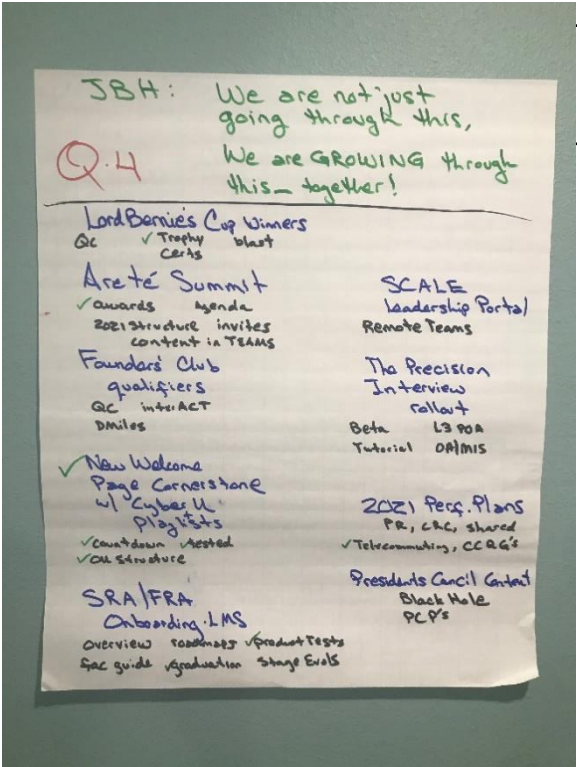 JBH: We are not just
going through this,
Q.4 We are GROWING through
this_ together!
Lord Bernie's Cup Winners
QC ✓Trophy blast
Certs
Areté Summit
✓awards Agenda
2021 Structure invites
content in TEAMS
Founders' Club
qualifiers
QC interACT
DMiles
✓New Welcome
Page Cornerstone
w/ Cyber U
Playlists
✓Countdown ✓tested
✓OU Structure
SRA/FRA
Onboarding-LMS
Overview roadmaps ✓product Tests
fac guide ✓graduation Stage Evals
SCALE
Leadership Portal
Remote Teams
The Precision
Interview
rollout
Beta L3 POA
Tutorial OA/MIS
2021 Perf. Plans
PR, CRC, shared
✓Telecommuting, CCQG's
Presidents Concil Content
Black Hole
PCP's